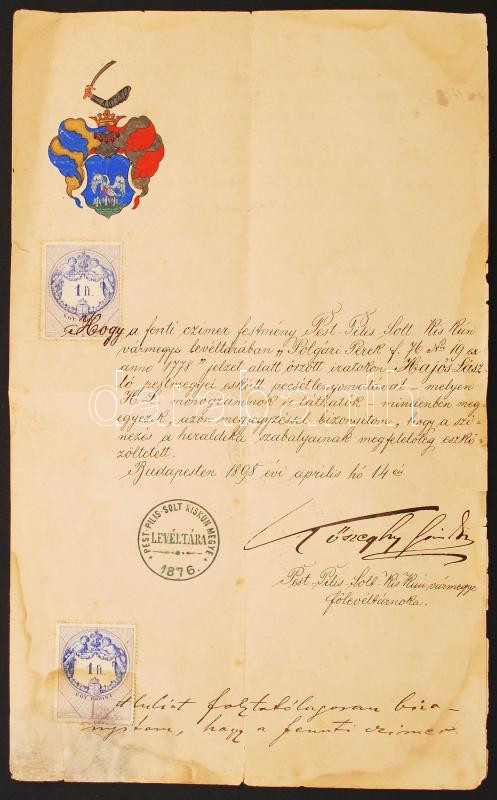 1 ft.
EGY FORINT
Hogy a fenti czimer festmény Pest Pilis Solt Kis Kún
vármegye levéltárában „Polgári Perek f. 76 No 19 ex
anno 1778” jelzet alatt őrzött iratokon Hajós Lász-
ló pestmegyei eskütt pecsétlenyomatával - melyen
H. L. monogrammok is láthatók - mindenben meg-
egyezik, azon megjegyzéssel bizonyitom, hogy a szi-
nezés a heraldika szabályainak megfelelőleg eszkö-
zöltetett.
Budapesten 1898 évi április hó 14 én
PEST-PILIS-SOLT-KISKUN MEGYE
LEVÉLTÁRA
1876.
Kőszeghy Sándor
Pest-Pilis-Solt-Kis Kún vármegye
főlevéltárnoka.
1 ft.
EGY FORINT
folytatólagosan bizo-
nyitom, hogy a fennti czimer
darabanth